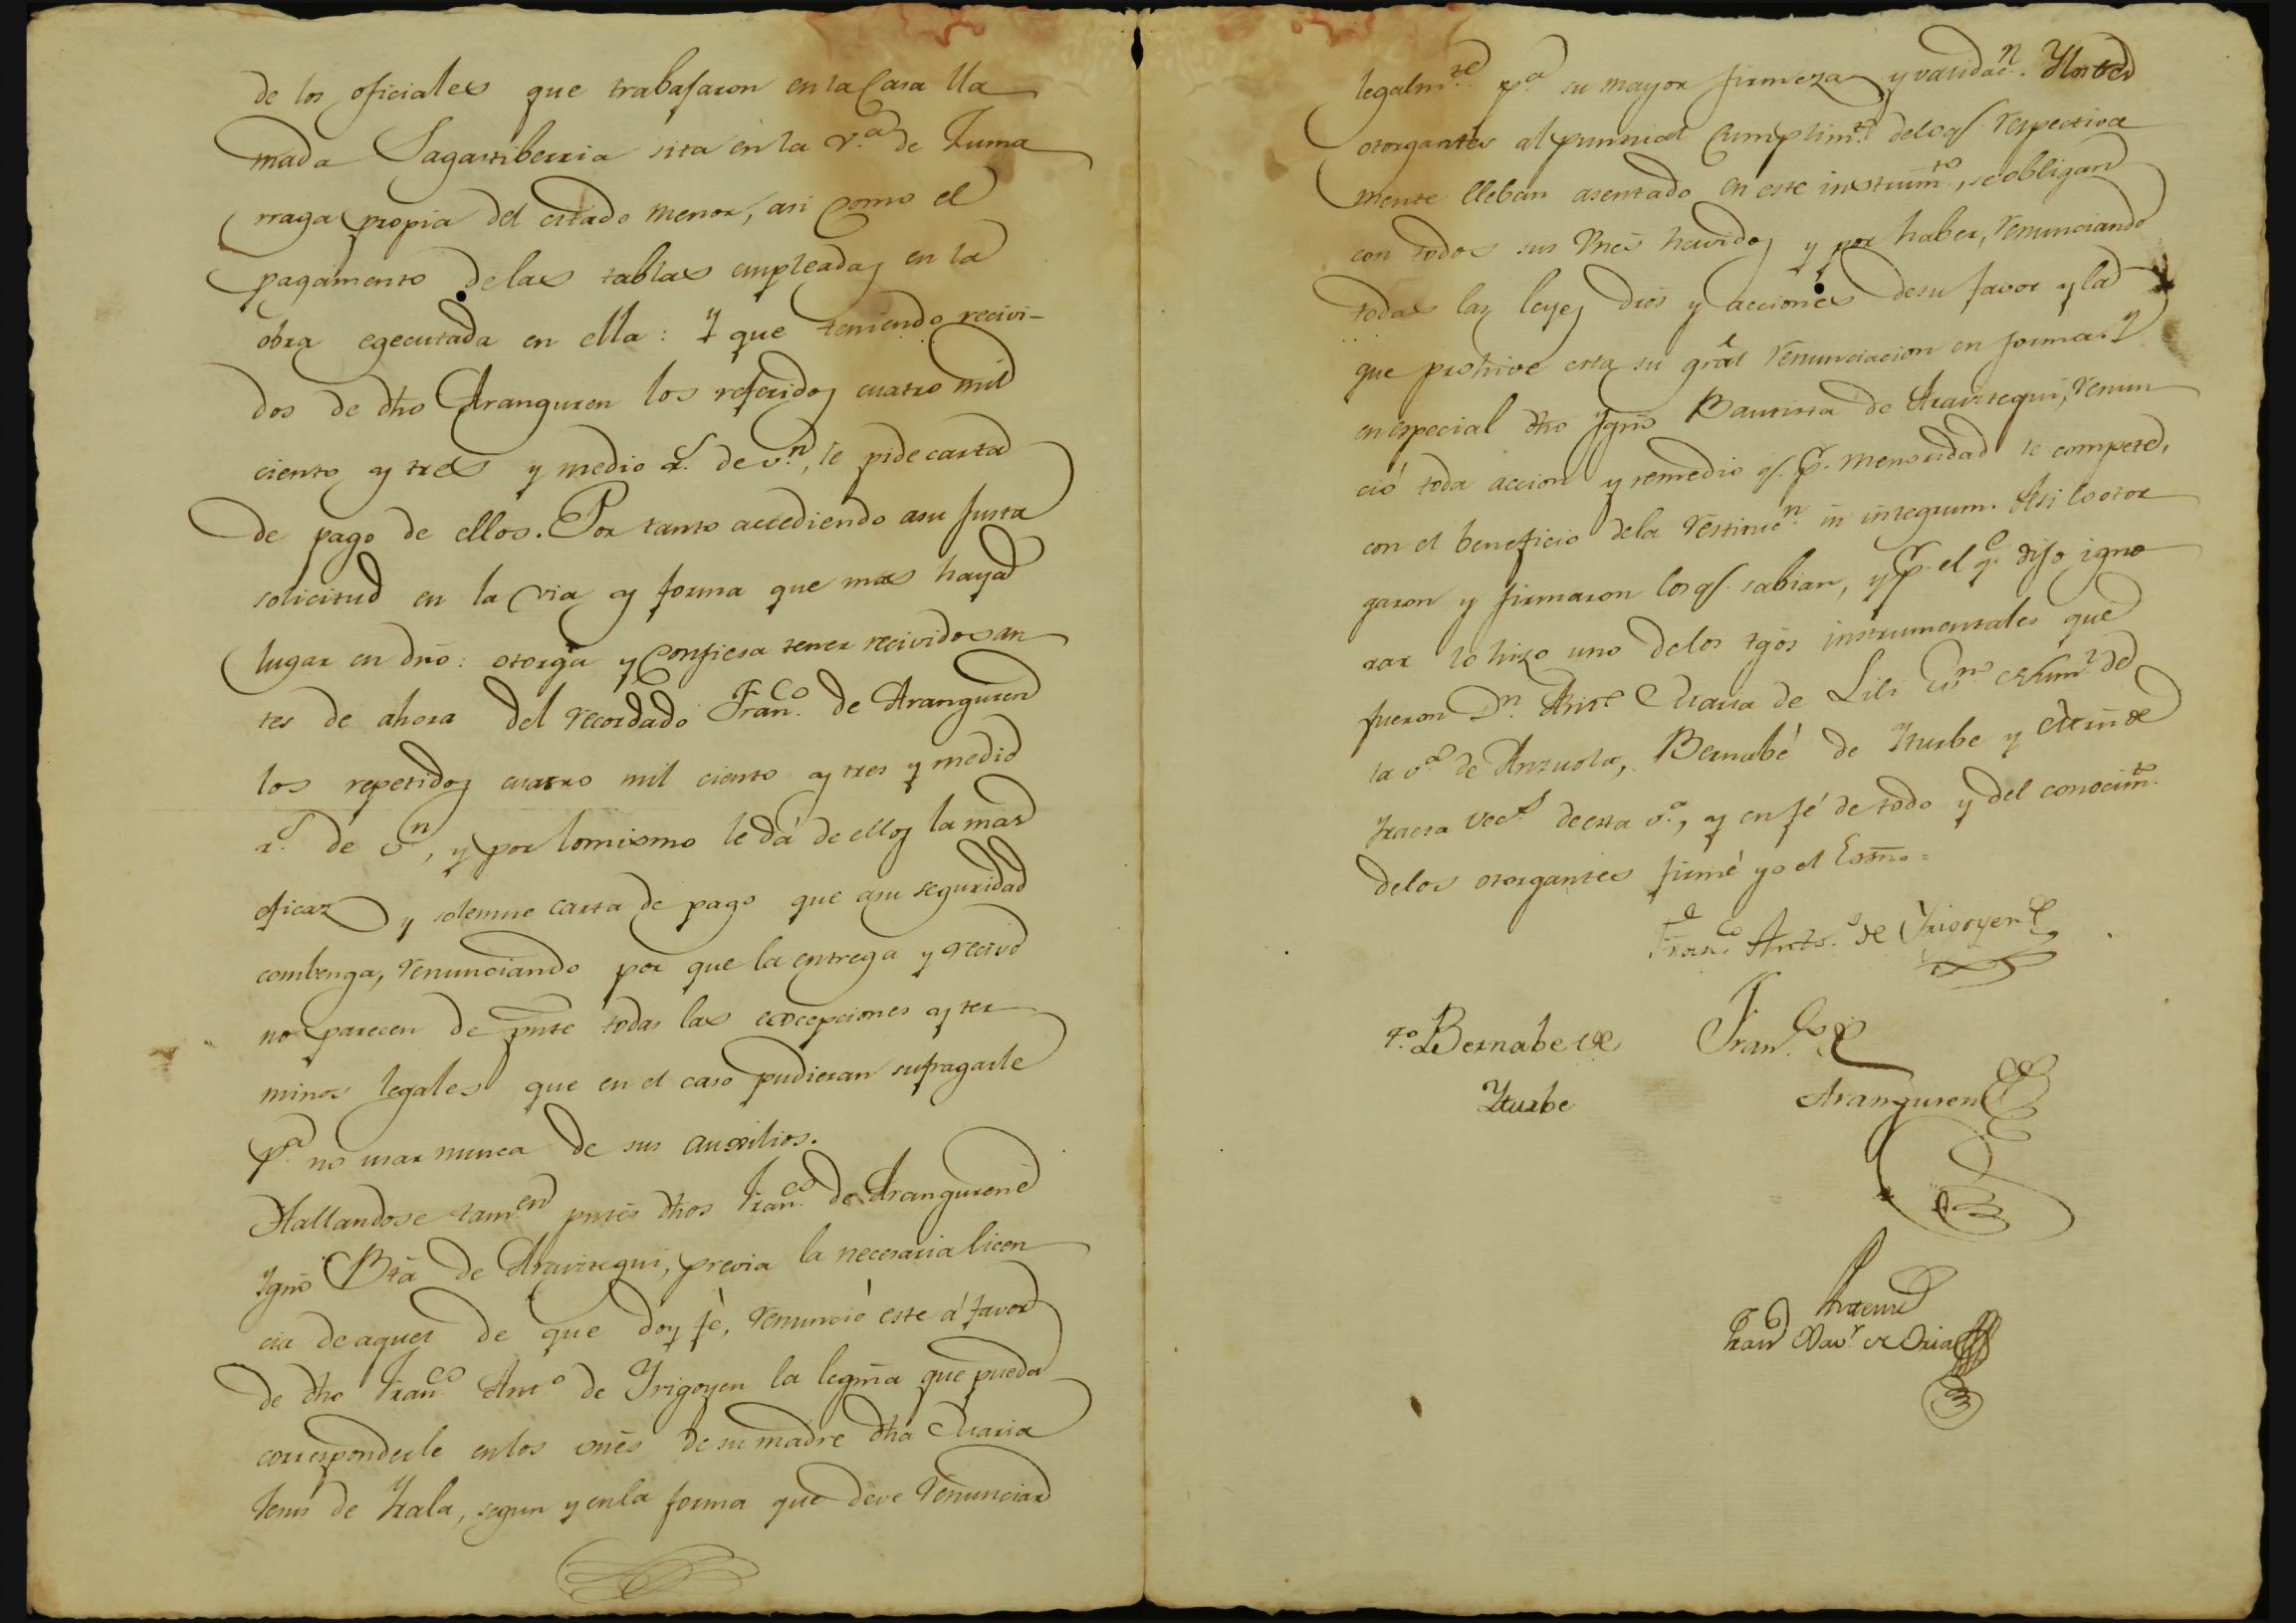 de los oficiales que trabajaron en la Casa lla
mada Sagastiberria sita en la v.ª de Zuma
rraga propia del estado menor, asi como el
pagamento de las tablas empleadas en la
obra egecutada en ella: Y que teniendo recivi-
dos de dho Aranguren los referidos cuatro mil
ciento y tres y medio r.s de v.n, le pide carta
de pago de ellos. Por tanto accediendo a su justa
solicitud en la via y forma que mas haya
lugar en dro: otorga y confiesa tener recividos an
tes de ahora del recordado Fran.co de Aranguren
los repetidos cuatro mil ciento y tres y medio
r.s de v.n, y por lo mismo le dá de ellos la mas
eficaz y solemne carta de pago que a su seguridad
combenga, renunciando por que la entrega y recivo
no parecen de pnte todas las excepciones y ter
minos legales que en el caso pudieran sufragarle
p.a no usar nunca de sus auxilios.
Hallandose tamen pntes dhos Fran.co de Aranguren é
Ygnō Btā de Araviztegui, previa la necesaria licen
cia de aquel de que doy fé, renunció este á favor
de dho Fran.co Ant.o de Yrigoyen la legma que pueda
corresponderle en los vnes de su madre dha Maria
Jesus de Yzala, segun y en la forma que deve renunciar
legalm.te p.a su mayor firmeza y validac.n. Y los tres
otorgantes al punnual cumplim.to de lo q.e respectiva
mente lleban asentado en este instrum.to, se obligan
con todos sus vnes havidos y por haber, renunciando
todas las leyes dros y acciones de su favor y la
que prohive esta su gral renunciacion en forma. Y
en especial dho Ygnō Bautista de Araviztegui, renun
ció toda accion y remedio q.e p.r menoridad le compete,
con el beneficio de la restituc.n in integrum. Asi lo otor
garon y firmaron los q.e sabian, y p.r el q.e dijo igno
rar lo hizo uno de los tgos instrumentales que
fueron D.n Ant.o Maria de Lili Es.no Num.l de
la v.a de Anzuola, Bernabé de Yturbe y
vec.s de esta v.a, y en fé de todo y del conocim.to
de los otorgantes firmé yo el Essno=
Fran.co Anto.o de Yrigoyen
t.o Bernabe de
Yturbe
Fran.co de
Aranguren
Antemi
Fran.co Xav.r de Oria